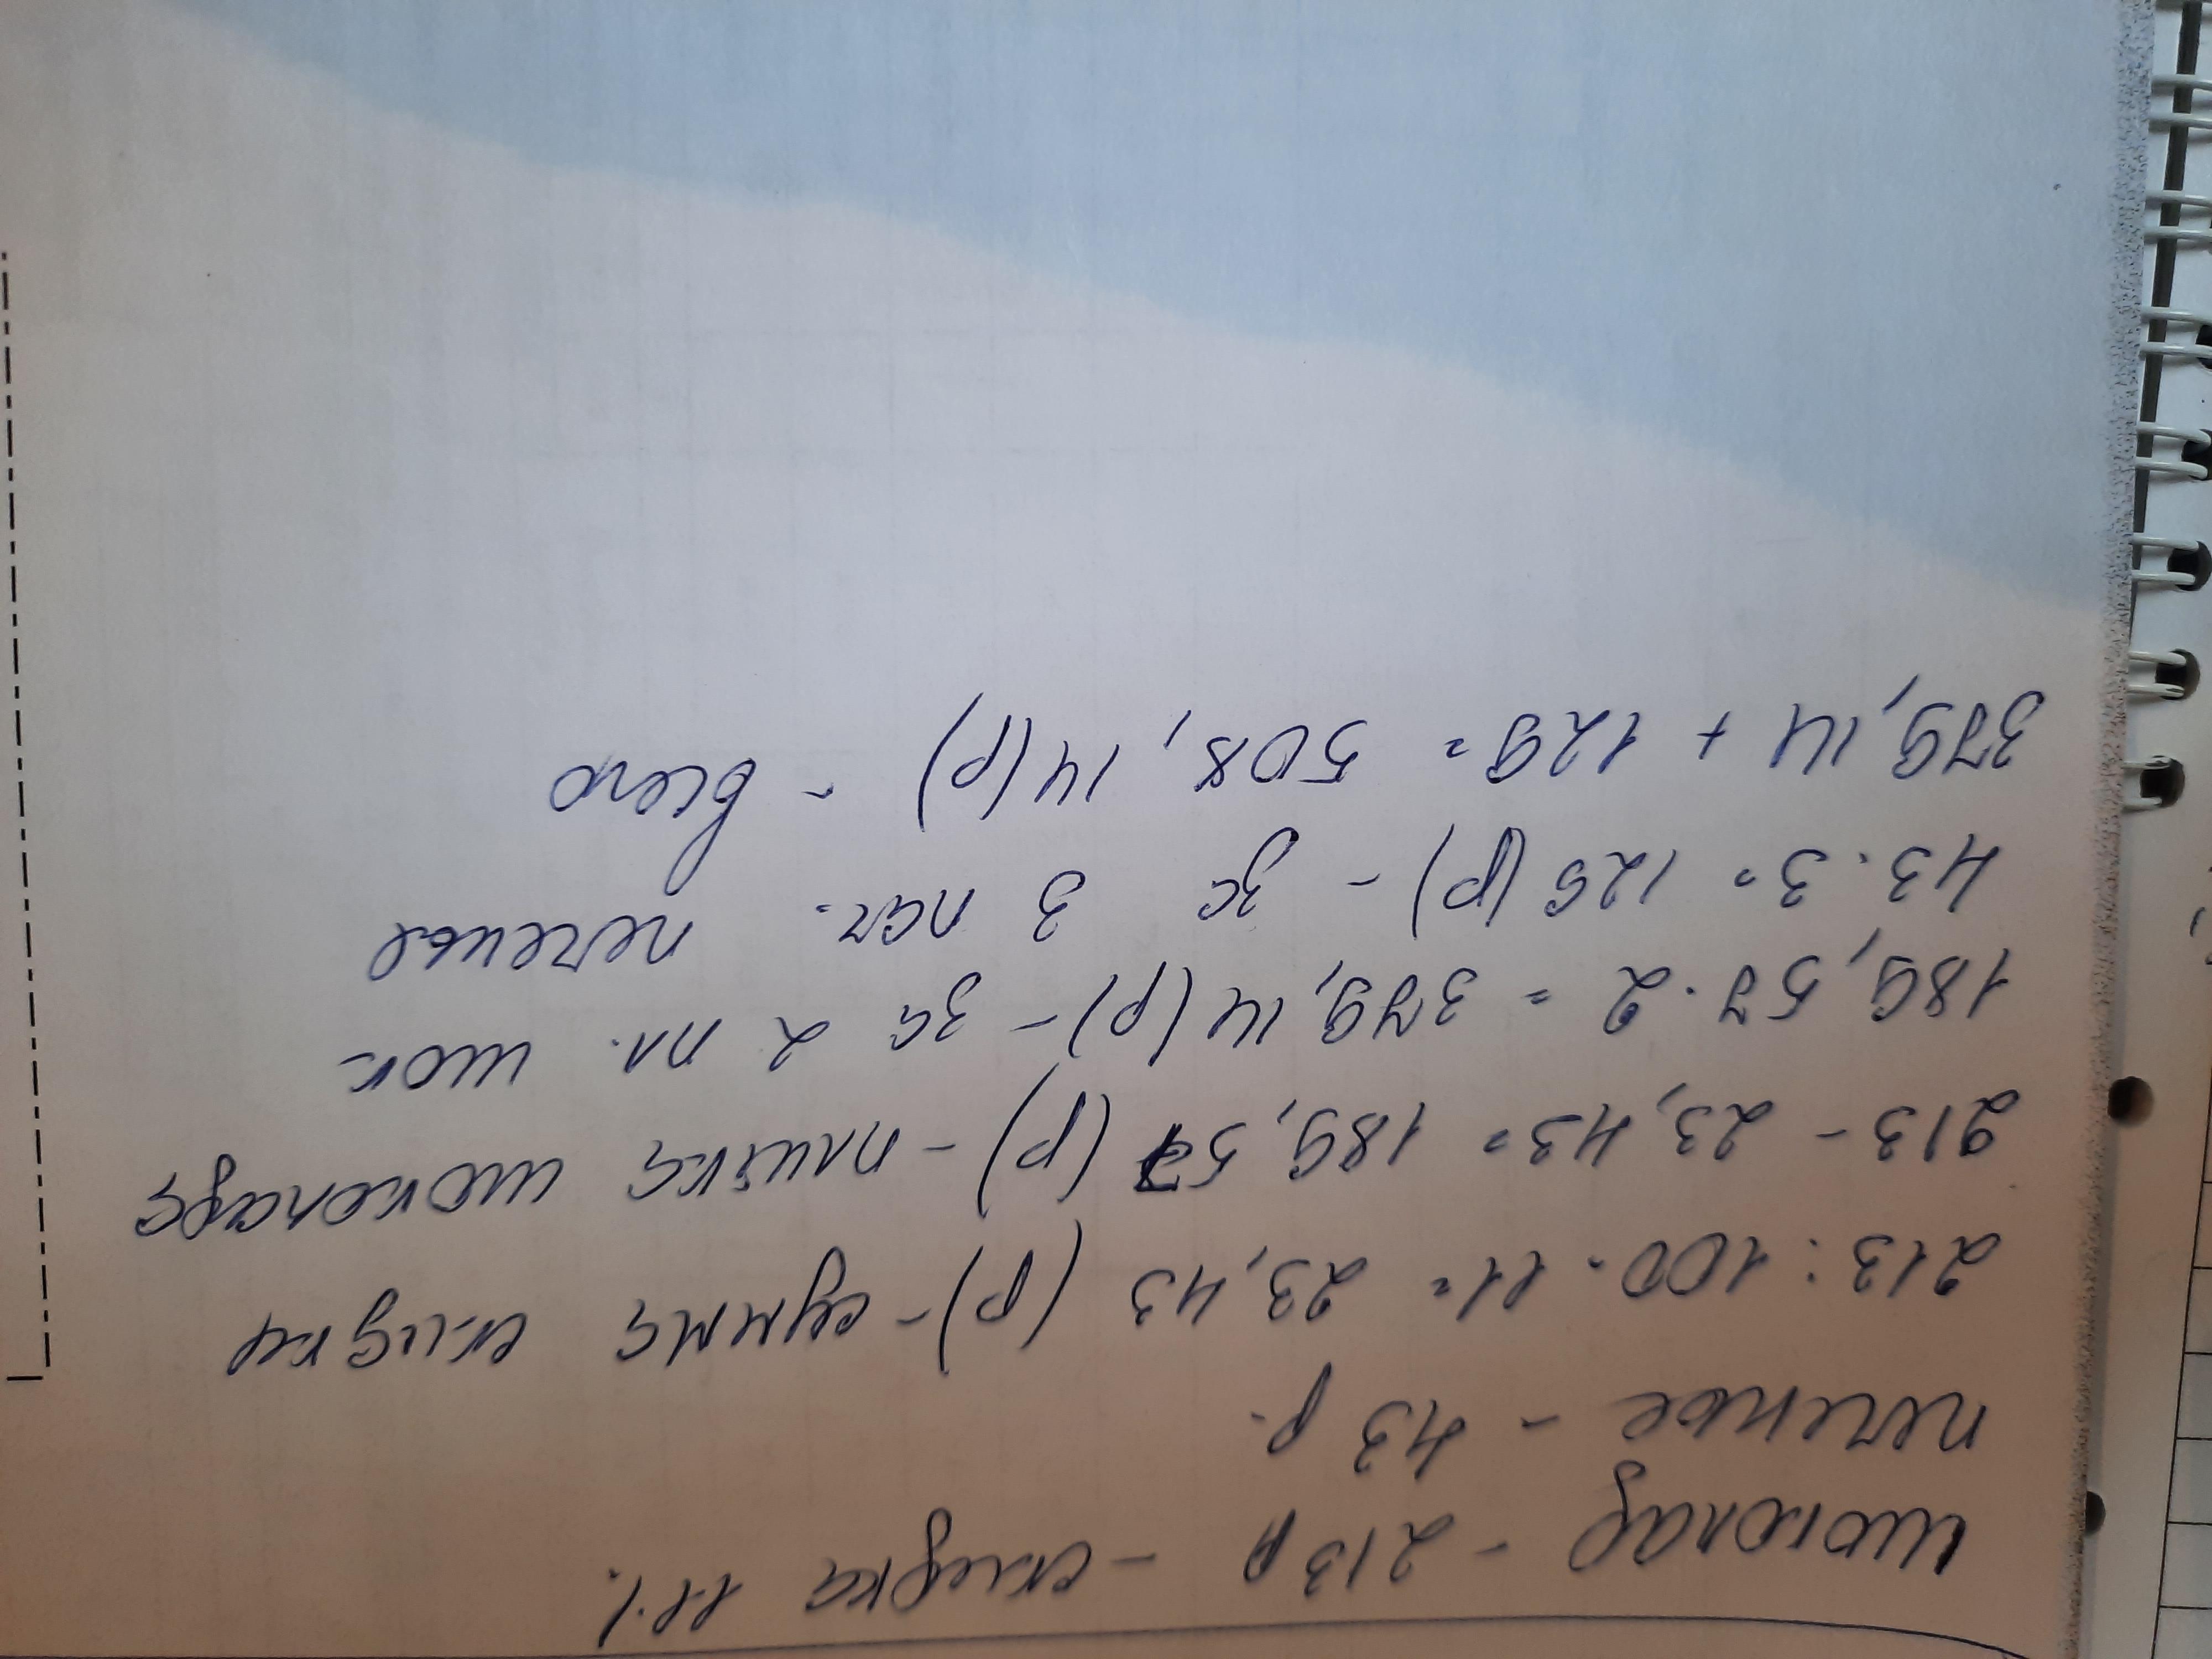 шоколад - 213 р - скидка 11%
печенье - 43 р.
213 : 100 · 11 = 23,43 (р) - сумма скидки
213 - 23,43 = 189,57 (р) - плитка шоколада
189,57 · 2 = 379,14 (р) - за 2 пл. шок.
43 · 3 = 129 (р) - за 3 пач. печенье
379,14 + 129 = 508,14 (р) - всего